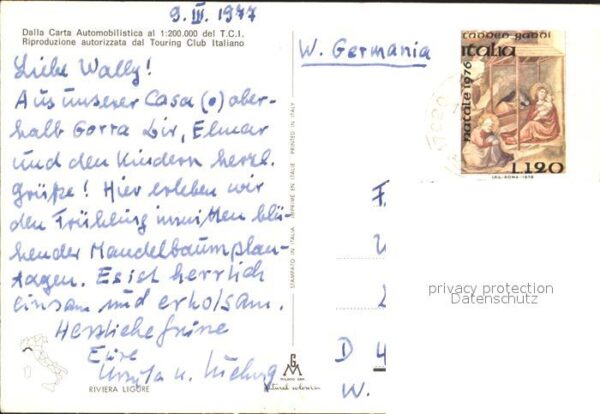 9.III.1977
Dalla Carta Automobilistica al 1:200.000 del T.C.I.
Riproduzione autorizzata dal Touring Club Italiano
W. Germania
Taddeo Gaddi
Italia
natale 1976
L.120
I.P.S.-ROMA-1976
Liebe Wally!
Aus unserer Casa (o) ober-
halb Gorra Dir, Elmar
und den Kindern herzl.
Grüße! Hier erleben wir
den Frühling inmitten blü-
hender Mandelbaumplan-
tagen. Es ist herrlich
einsam und erholsam.
Herzliche Grüße
Eure
Ursula u.
STAMPATO IN ITALIA IMPRIME EN ITALIE PRINTED IN ITALY
D 4
W.
privacy protection
Datenschutz
RIVIERA LIGURE